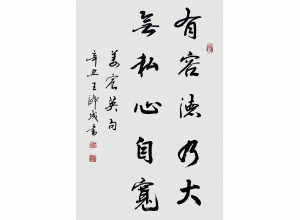 有容德乃大
無私心自寬
姜宸英句
辛丑王师成书